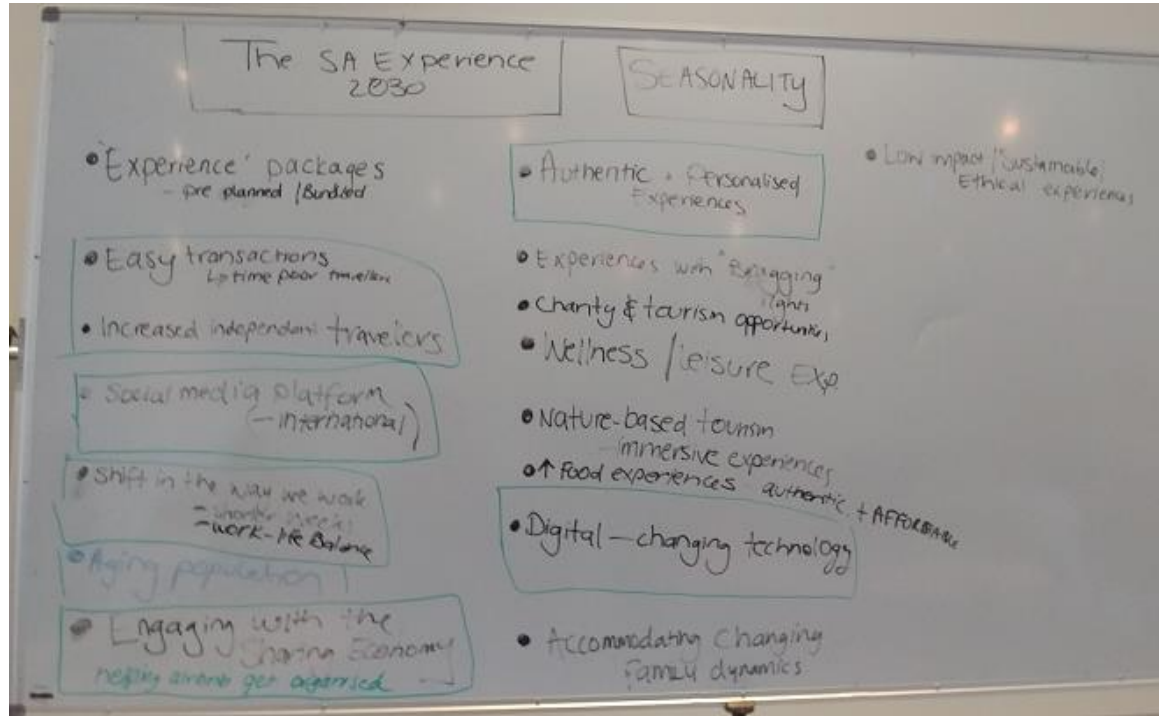 The SA Experience
2030
• 'Experience' packages
- pre planned / Bundled
• Easy transactions
↳ time poor travellers
• Increased independant travelers
• Social media platform
(- international)
• Shift in the way we work
- shorter weeks
- work-life Balance
• Aging population
• Engaging with the
Sharing Economy
helping airbnb get organised
SEASONALITY
• Authentic + Personalised
Experiences
• Experiences with "Bragging"
rights
• Charity & tourism opportunities
• Wellness / leisure Exp.
• Nature-based tourism
- immersive experiences
• ↑ Food experiences authentic + AFFORDABLE
• Digital - changing technology
• Accommodating Changing
Family dynamics
• Low impact / Sustainable /
Ethical experiences